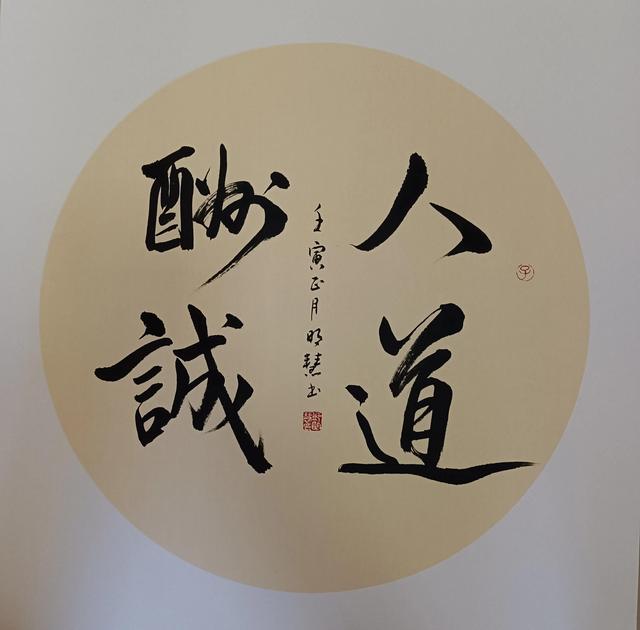 人道
酬誠
壬寅正月明慧书
子